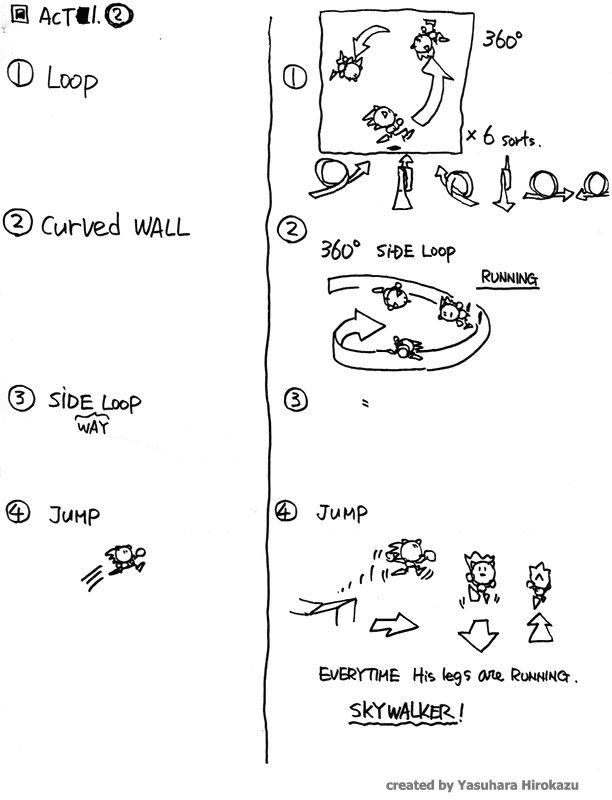 ACT 1. ②
① LOOP
② Curved WALL
③ SiDE LOOP
WAY
④ JUMP
①
360°
× 6 sorts.
②
360° SiDE LOOP
RUNNING
③ 〃
④ JUMP
EVERYTIME His legs are RUNNING.
SKYWALKER!
created by Yasuhara Hirokazu